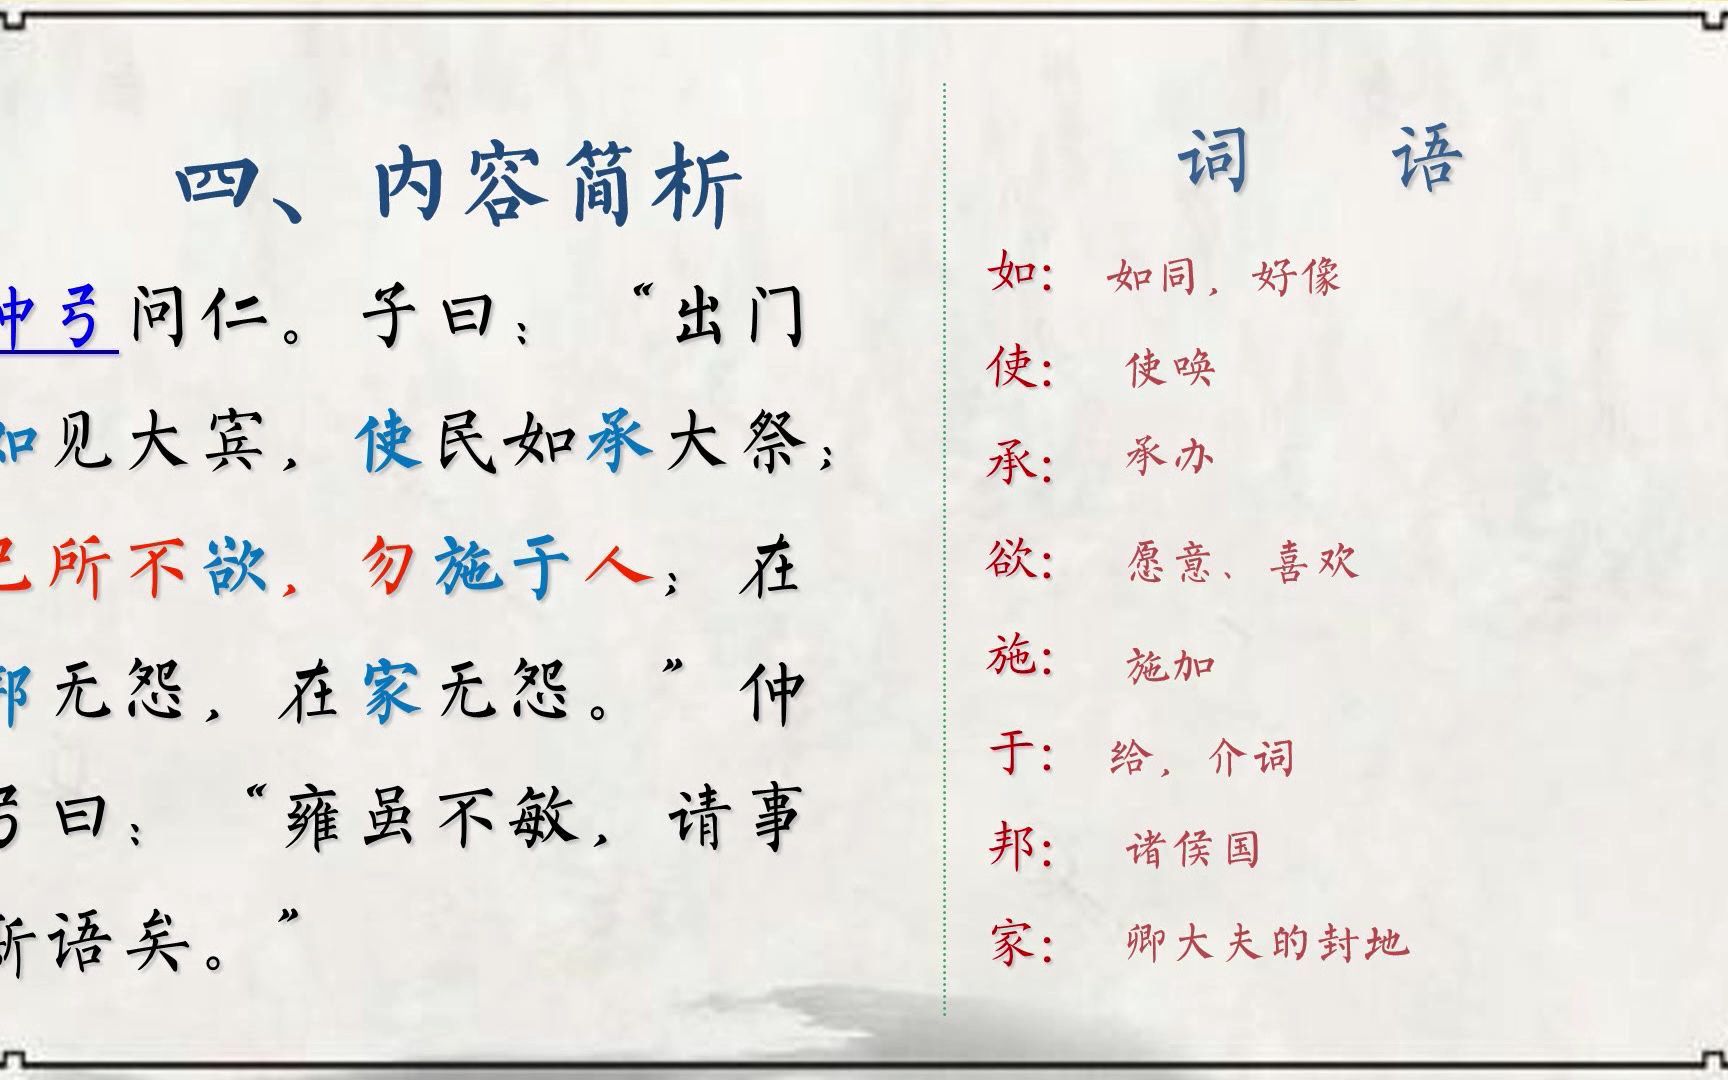 四、内容简析
仲弓问仁。子曰：“出门
如见大宾，使民如承大祭；
己所不欲，勿施于人；在
邦无怨，在家无怨。”仲
弓曰：“雍虽不敏，请事
斯语矣。”
词 语
如： 如同，好像
使： 使唤
承： 承办
欲： 愿意、喜欢
施： 施加
于： 给，介词
邦： 诸侯国
家： 卿大夫的封地